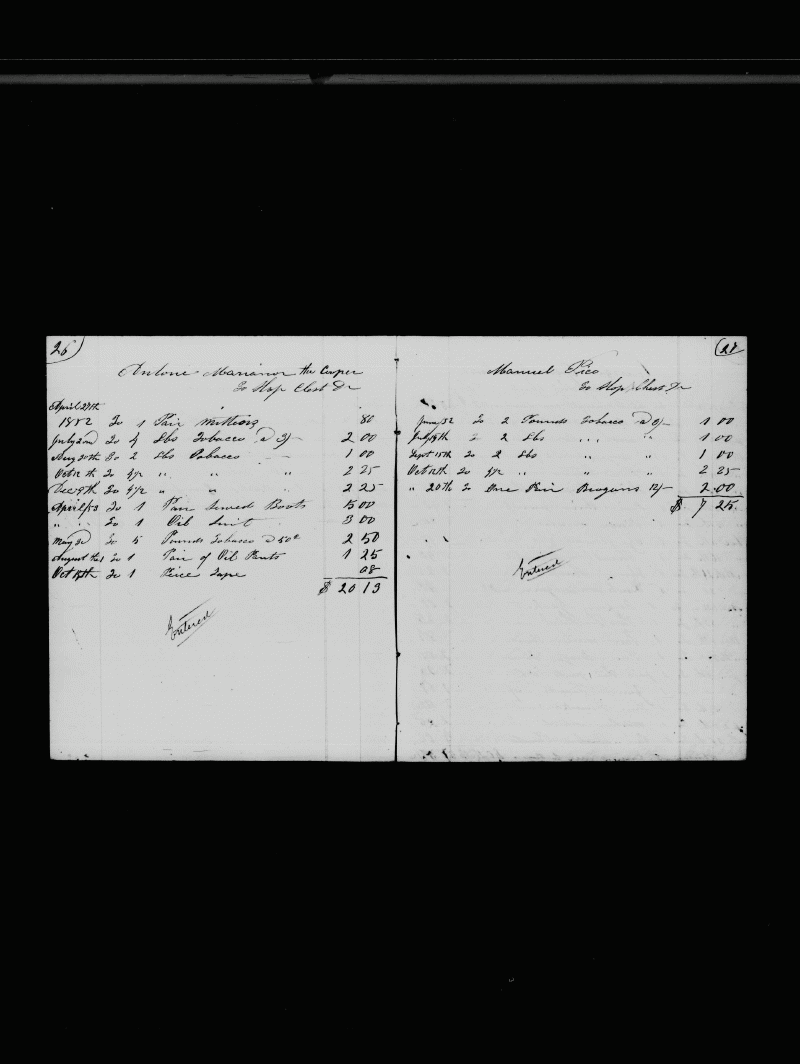 26
Antone Marianor the Cooper
To Slop Chest Dr
April 27th
1852 To 1 Pair Mittens 80
July 2nd To 4 Lbs Tobacco @ 3/- 2 00
Aug 20th To 2 Lbs Tobacco 1 00
Oct 12th To 4 1/2 " " " 2 25
Dec 9th To 4 1/2 " " " 2 25
April /53 To 1 Pair Sewed Boots 5 00
" " To 1 Oil Suit 3 00
May 3d To 5 Pounds Tobacco @ 50c 2 50
August the 1 To 1 Pair of Oil Pants 1 25
Oct To 1 Piece Tape 08
$ 20 13
Entered
27
Manuel Pico
To Slop Chest Dr
June /52 To 2 Pounds Tobacco @ 3/- 1 00
July 19th " 2 Lbs " " 1 00
Sept 15th To 2 Lbs " " 1 00
Oct 12th To 4 1/2 " " " 2 25
" 20th To One Pair Brogans 12/- 2 00
$ 7 25
Entered